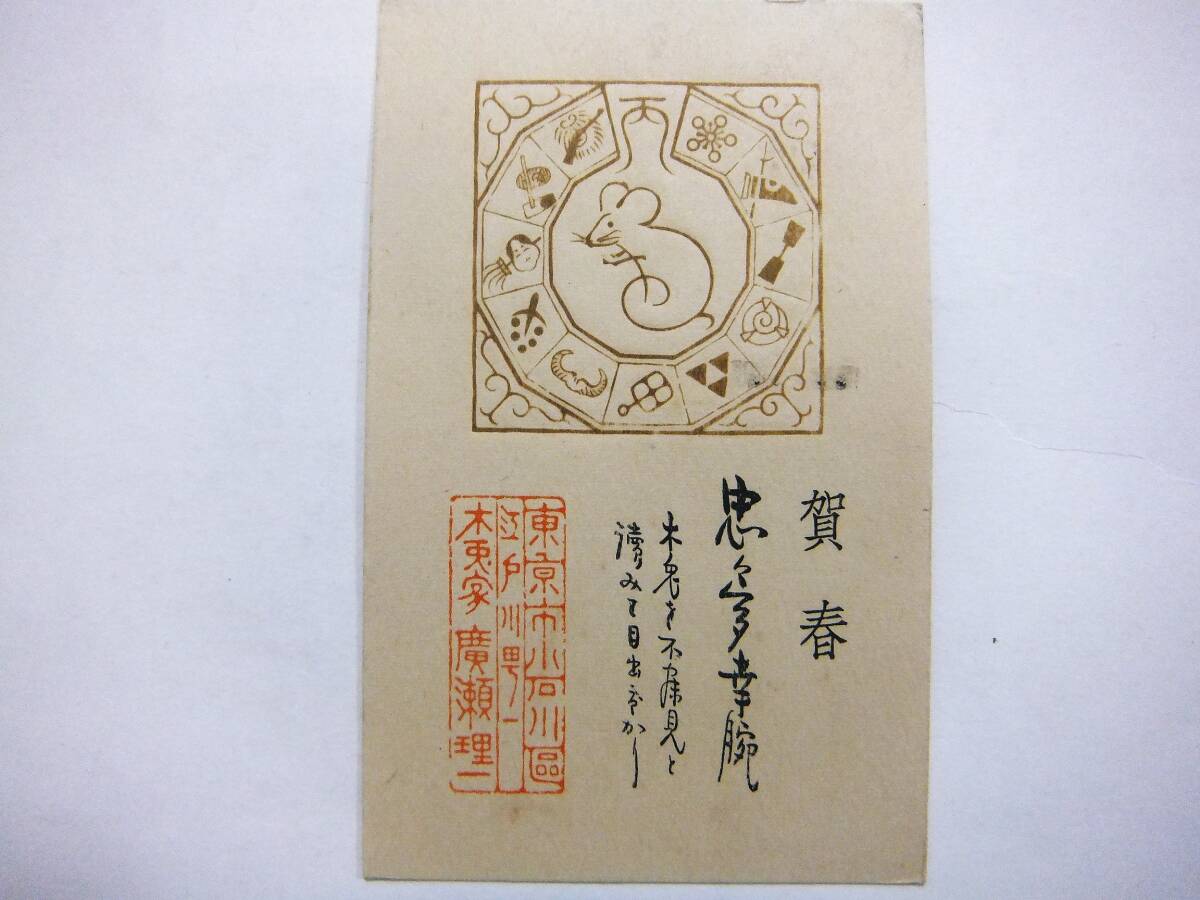 丙
賀春
忠々多幸腕
木兎を不寐見と
讀みて目出度かり
東京市小石川區
江戸川町一
木兎家 廣瀬理一